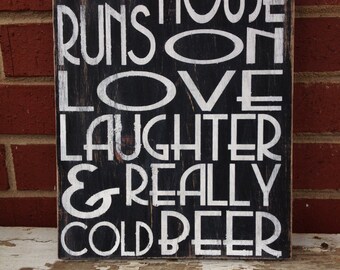 HOUSE
RUNS ON
LOVE
LAUGHTER
& REALLY
COLD BEER